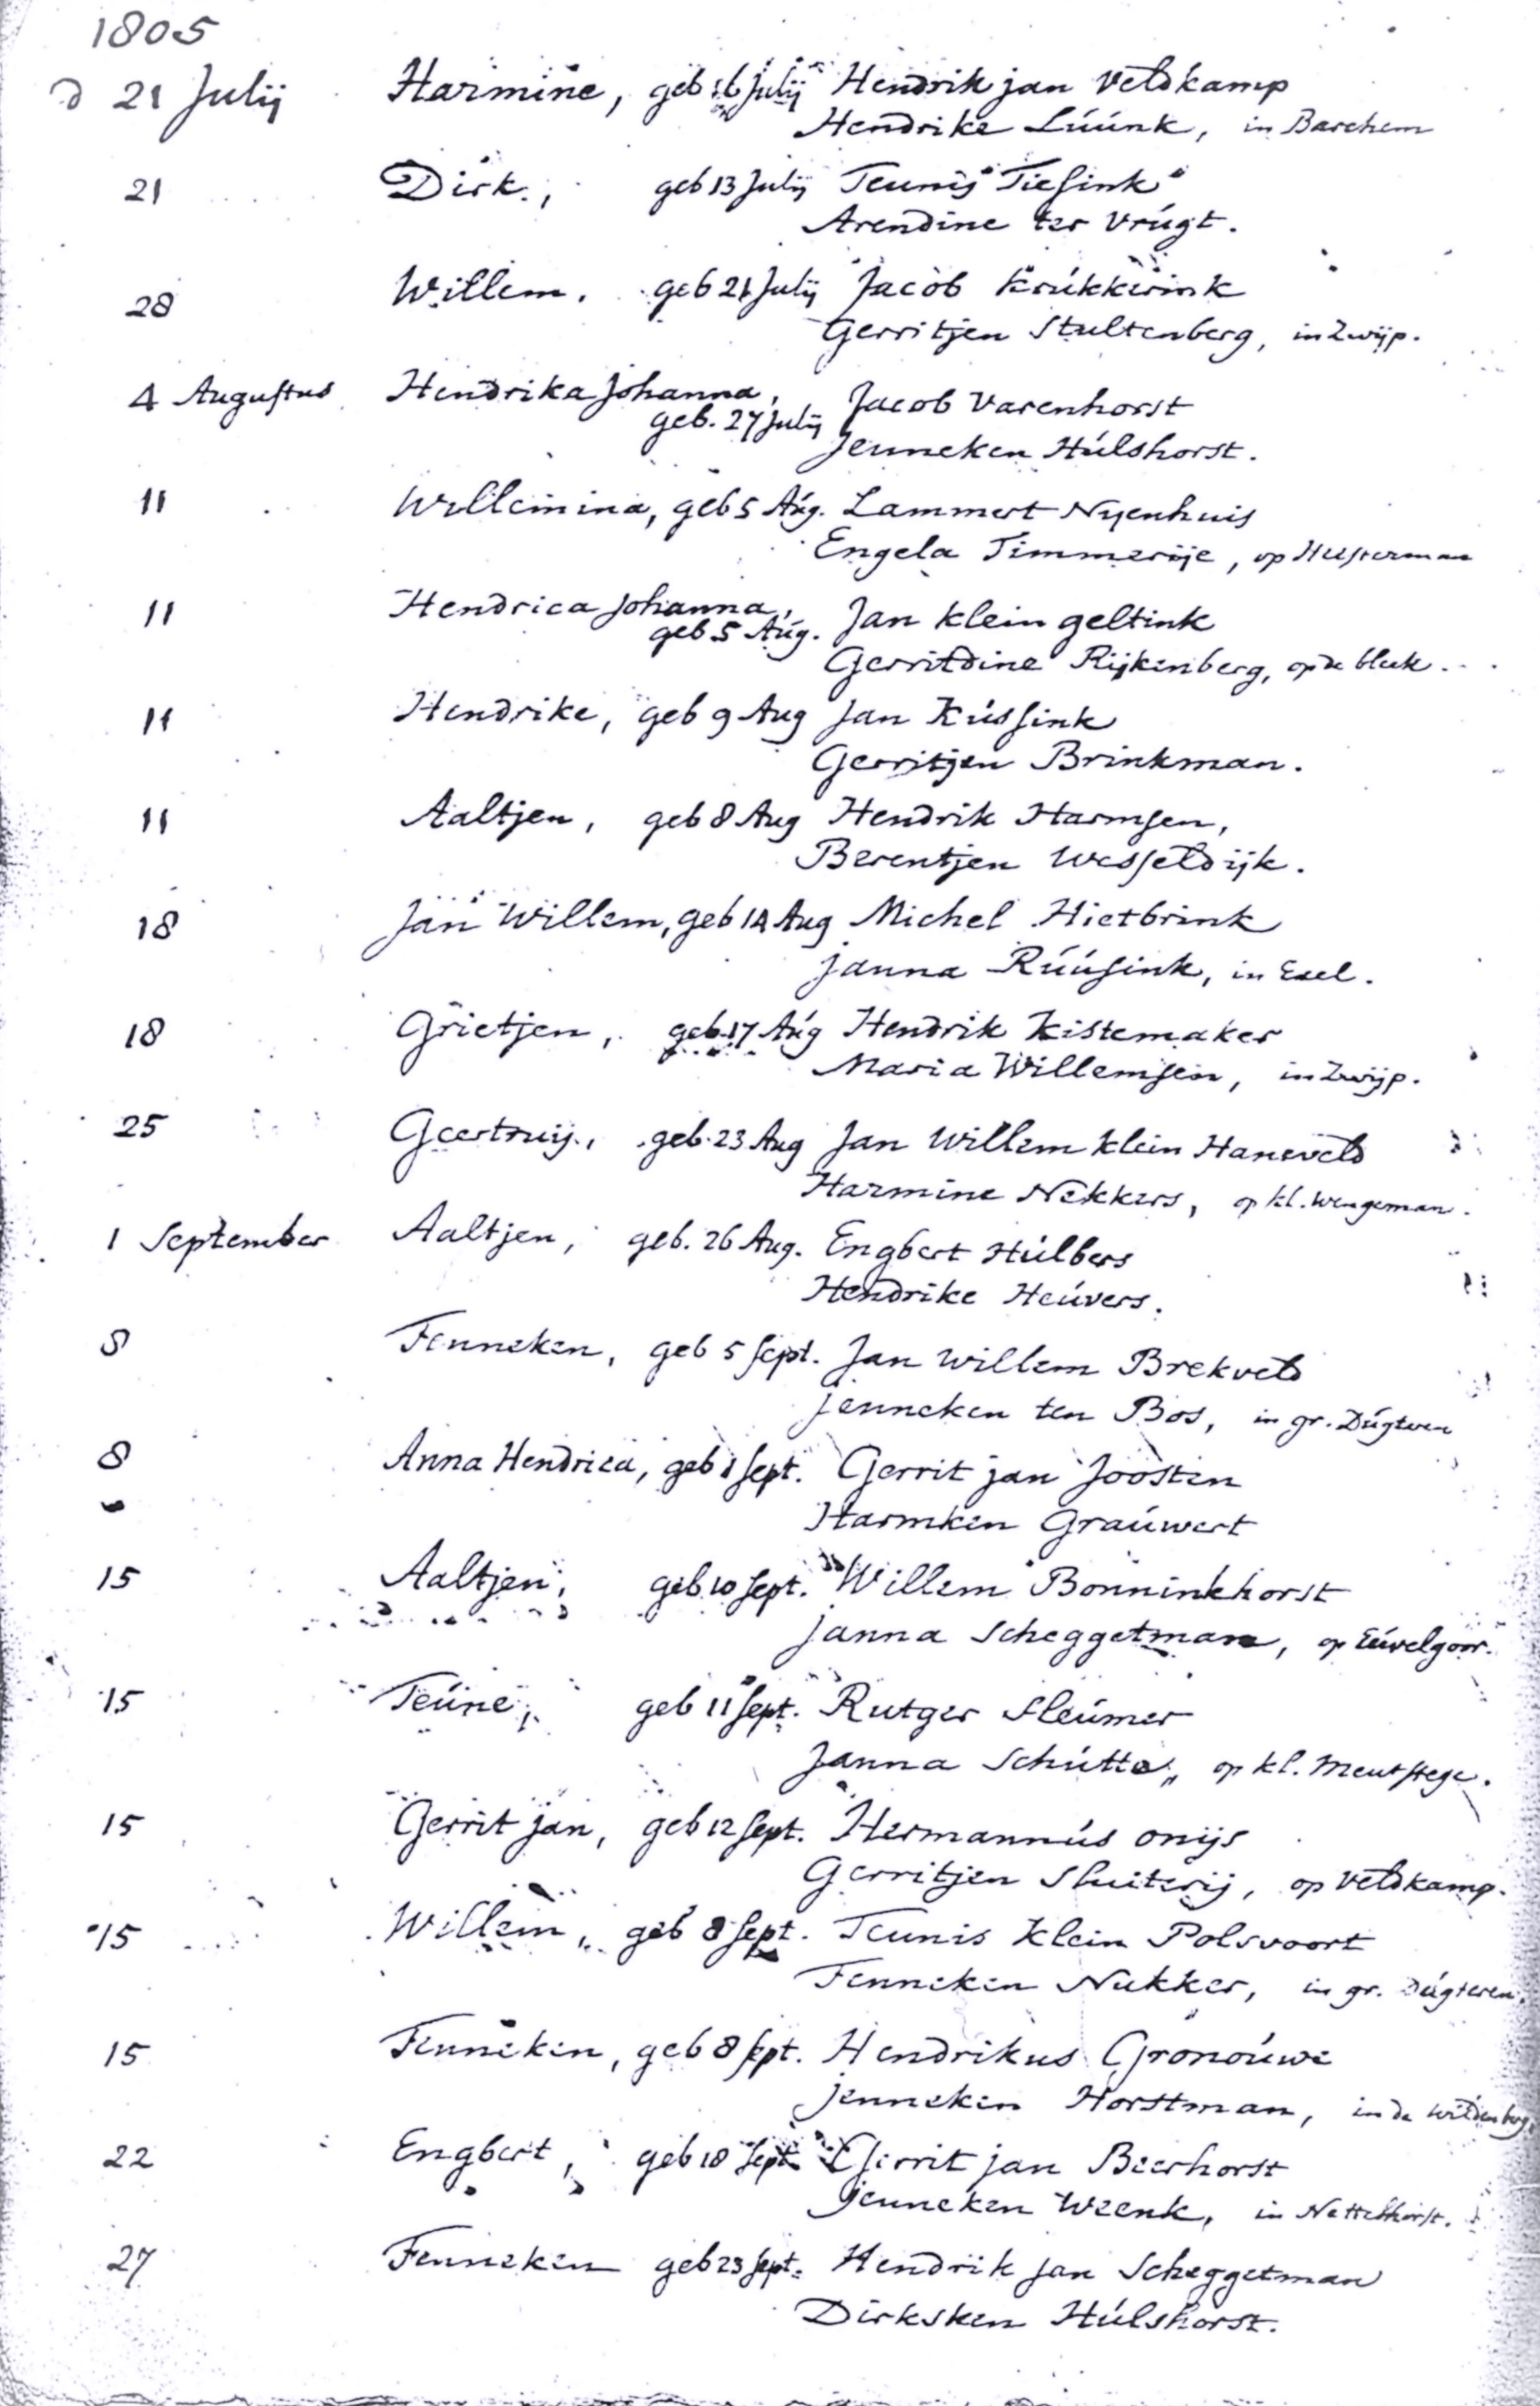 1805
d 21 Julij Harmine, geb 16 Julij Hendrik jan Veldkamp
Hendrike Lúúnk, in Barchem
21 Dirk, geb 13 Julij Teunis Tiesink
Arendine ter Vrúgt.
28 Willem, geb 21 Julij Jacob Krúkkerink
Gerritjen Stultenberg, in Zwijp.
4 Augustus Hendrika Johanna, Jacob Varenhorst
geb. 27 Julij
Jenneken Húlshorst.
11 Willemina, geb 5 Aúg. Lammert Nyenhuis
Engela Timmerije, op Hesterman
11 Hendrica Johanna, Jan klein geltink
geb 5 Aúg.
Gerritdine Rijkenberg, op de bleek.
11 Hendrike, geb 9 Aug Jan Kússink
Gerritjen Brinkman.
11 Aaltjen, geb 8 Aug Hendrik Harmsen,
Berentjen Wesseldijk.
18 Jan Willem, geb 14 Aug Michel Hietbrink
Janna Rúúsink, in Exel.
18 Grietjen, geb 17 Aúg Hendrik Kistemaker
Maria Willemsen, in Zwijp.
25 Geertruij, geb. 23 Aug Jan Willem klein Haneveld
Harmine Nekkers, op kl. Wengeman.
1 September Aaltjen, geb. 26 Aug. Engbert Húlbers
Hendrike Heúvers.
8 Fenneken, geb 5 Sept. Jan Willem Brekveld
Jenneken ten Bos, in gr. Dúgteren
8 Anna Hendrica, geb 1 Sept. Gerrit jan Joosten
Harmken Graúwert
15 Aaltjen, geb 10 Sept. Willem Bonninkhorst
Janna Scheggetman, op Eúvelgoor.
15 Teúne, geb 11 Sept. Rutger Sleúmer
Janna Schútte, op kl. Meutstege.
15 Gerrit jan, geb 12 Sept. Hermannús onijs
Gerritjen Sluiterij, op Veldkamp.
15 Willem, geb 8 Sept. Teunis Klein Polsvoort
Fenneken Nukker, in gr. Dúgteren.
15 Fenneken, geb 8 Sept. Hendrikus Gronoúwe
Jenneken Horstman, in de Wildenborg,
22 Engbert, geb 18 Sept. Gerrit jan Beerhorst
Jenneken Weenk, in Nettelhorst.
27 Fenneken geb 23 Sept. Hendrik Jan Scheggetman
Dirksken Húlshorst.